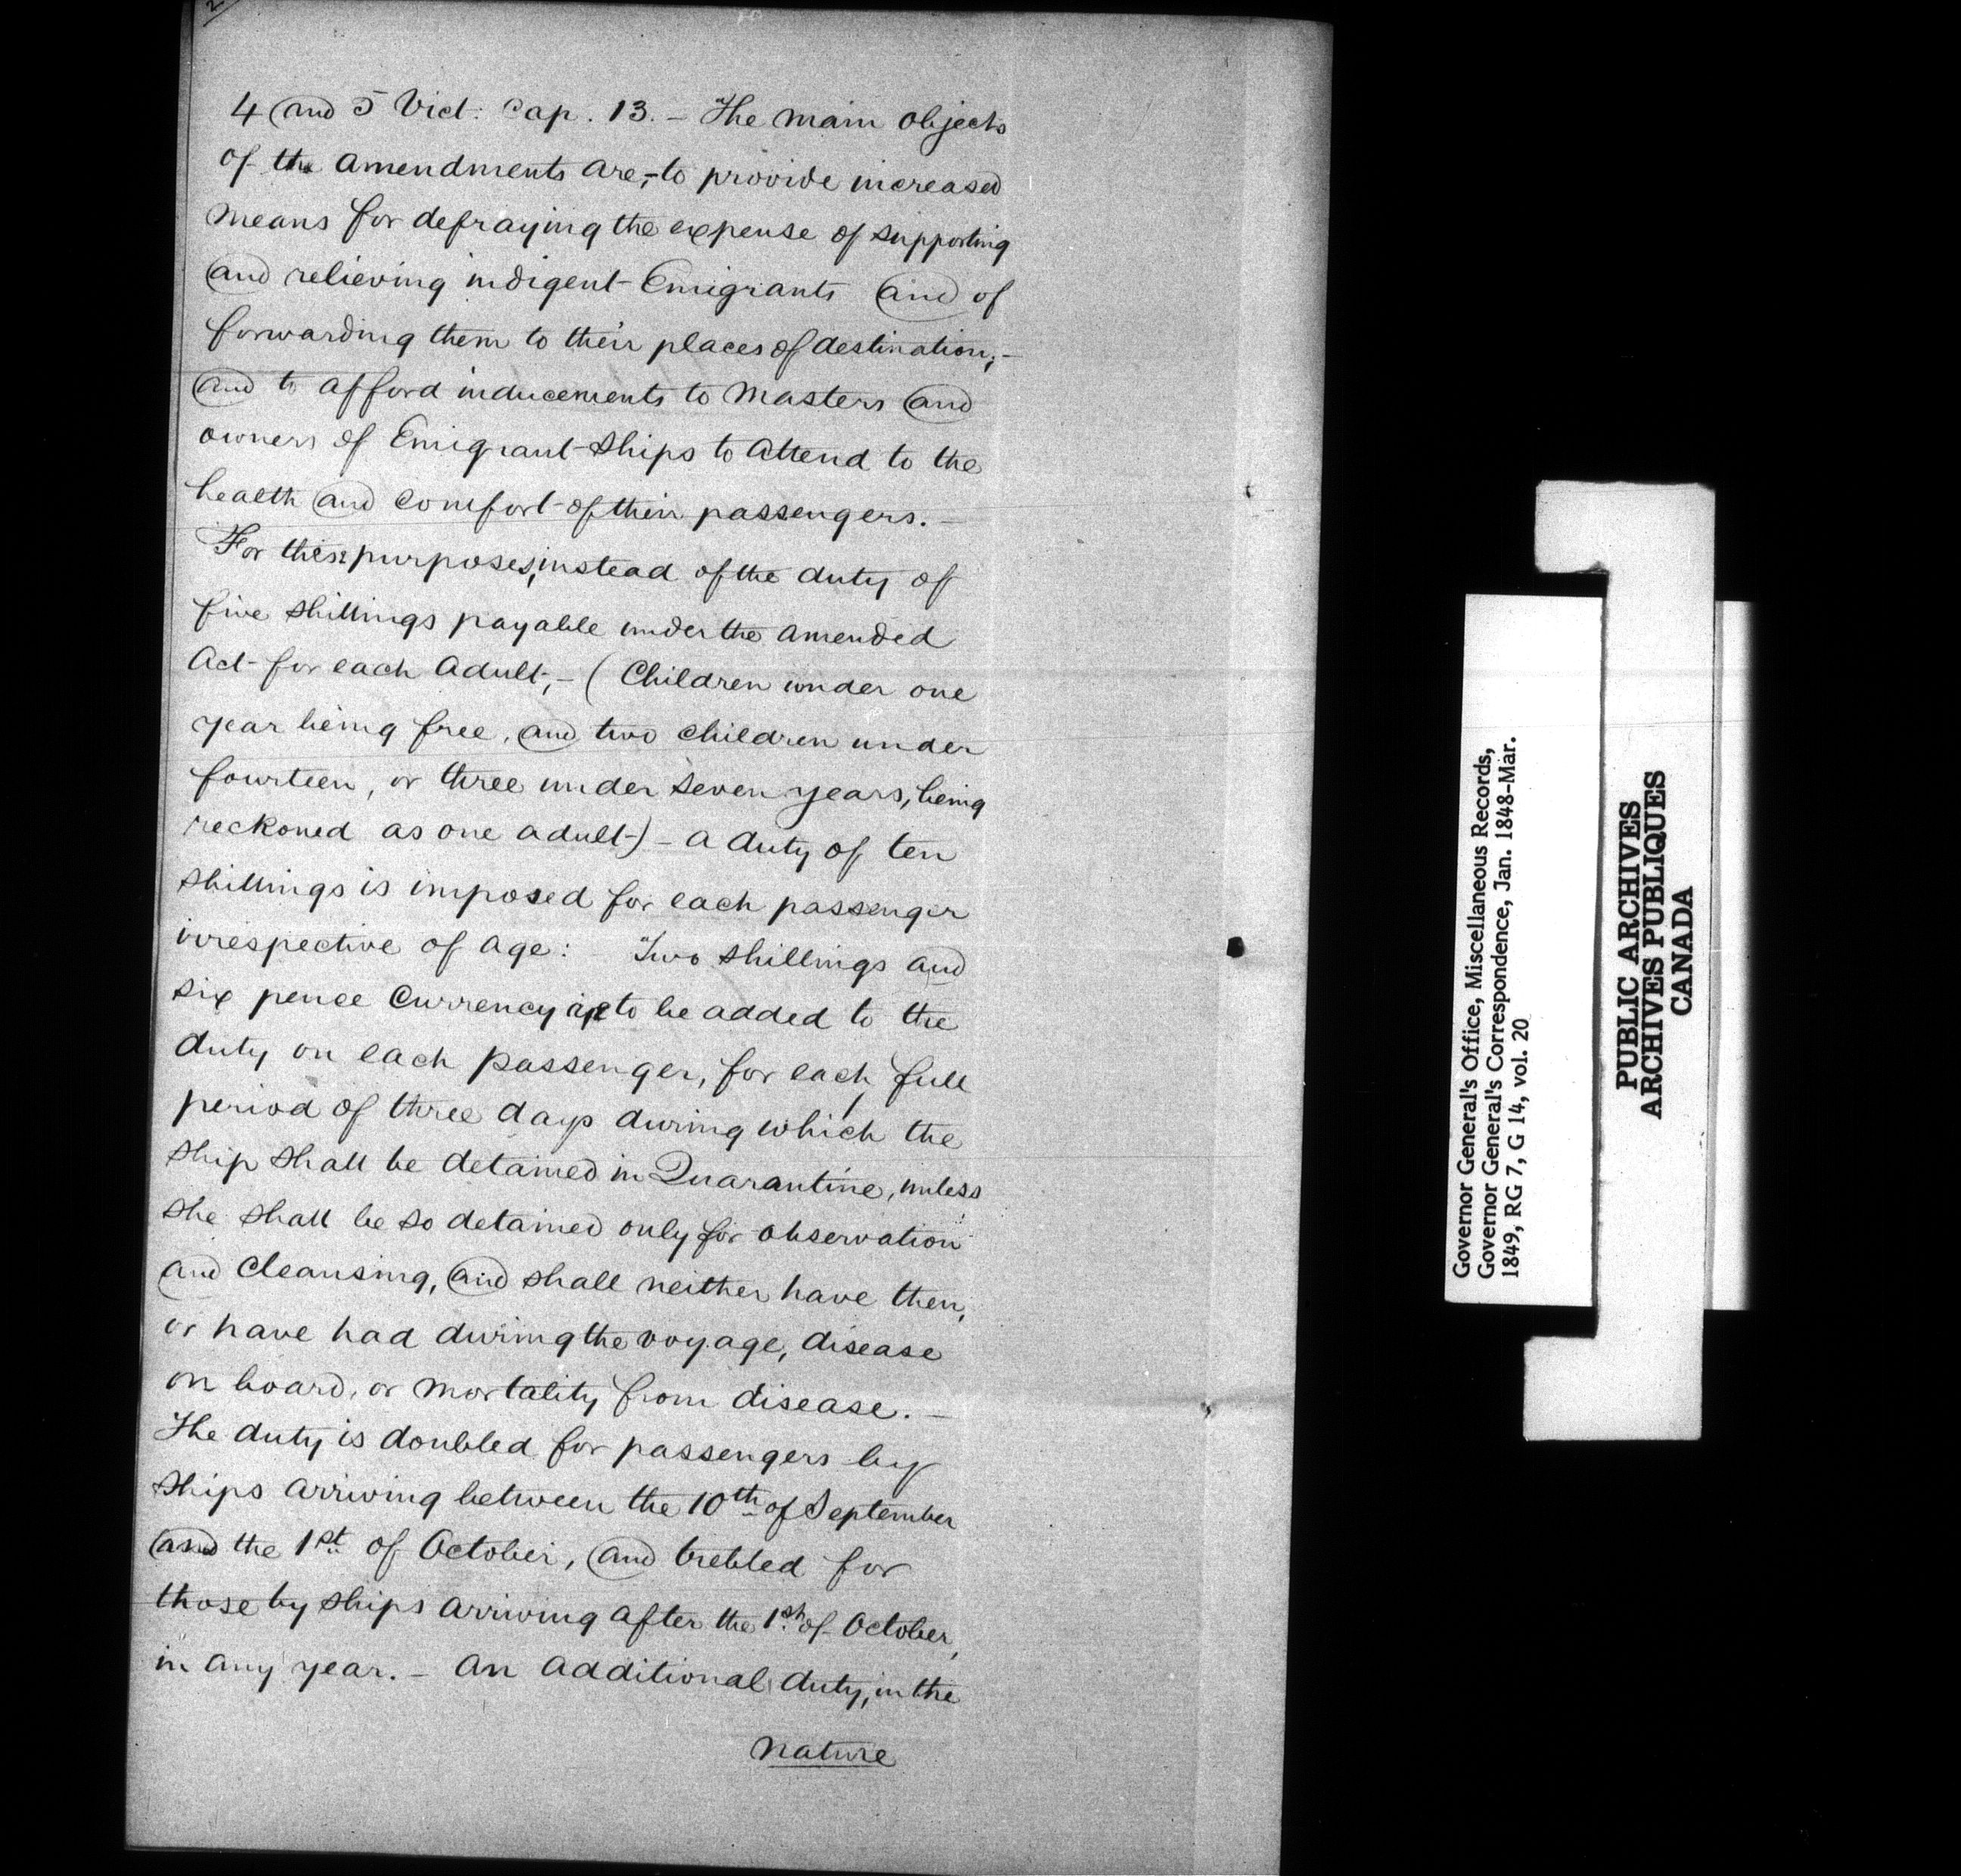 2
4 and 5 Vict: Cap. 13. - The main objects
of the amendments are,- to provide increased
means for defraying the expense of supporting
and relieving indigent Emigrants and of
forwarding them to their places of destination;-
and to afford inducements to Masters and
owners of Emigrant Ships to attend to the
health and comfort of their passengers. -
For these purposes, instead of the duty of
five shillings payable under the amended
Act for each Adult,- (Children under one
year being free, and two children under
fourteen, or three under seven years, being
reckoned as one adult) - a duty of ten
shillings is imposed for each passenger
irrespective of age: Two shillings and
six pence Currency are to be added to the
duty on each passenger, for each full
period of three days during which the
ship shall be detained in Quarantine, unless
she shall be so detained only for observation
and Cleansing, and shall neither have then,
or have had during the voyage, disease
on board, or mortality from disease. -
The duty is doubled for passengers by
Ships arriving between the 10th of September
and the 1st of October, and trebled for
those by ships arriving after the 1st of October,
in any year. - An additional duty, in the
nature
Governor General's Office, Miscellaneous Records,
Governor General's Correspondence, Jan. 1848-Mar.
1849, RG 7, G 14, vol. 20
PUBLIC ARCHIVES
ARCHIVES PUBLIQUES
CANADA